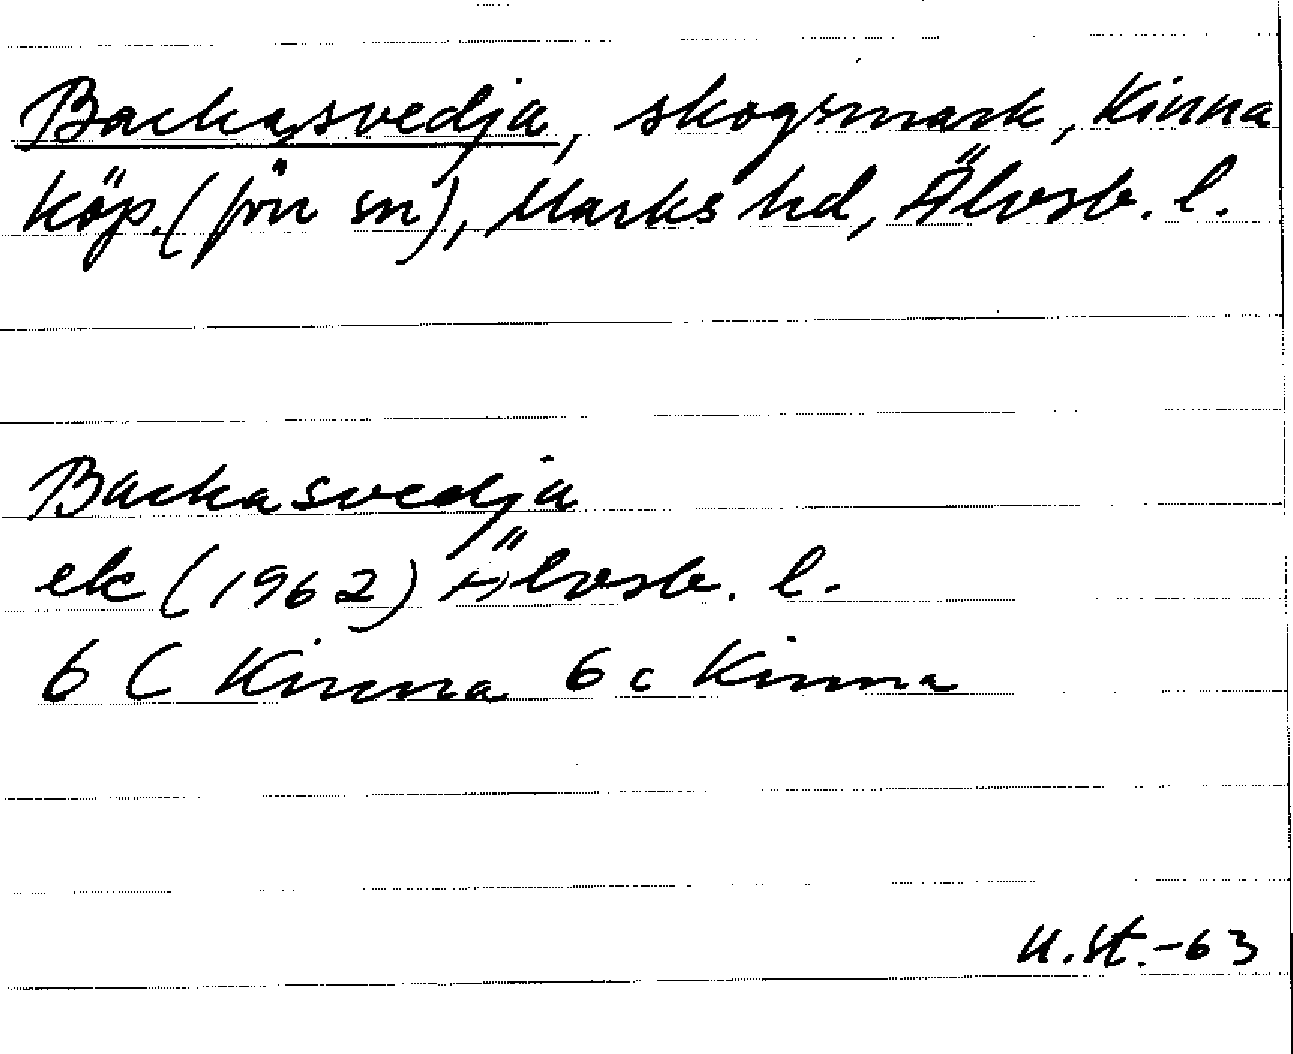 Backasvedja, skogsmark, Kinna
köp. (förr sn), Marks hd, Älvsb. l.
Backasvedja
ek (1962) Älvsb. l.
6 C Kinna 6 c Kinna
U.St.-63